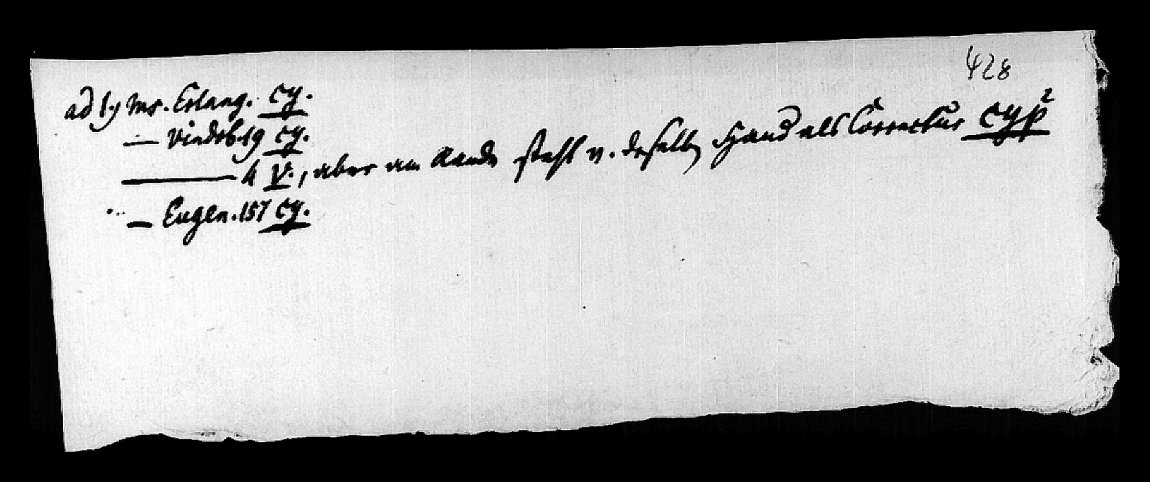 428
ad 1) Ms. Erlang. cy.
— Vindob. 19 cy.
— 4 V., aber am Rande steht v. derselben Hand als Correctur cyp²
— Eugen. 157 cy.